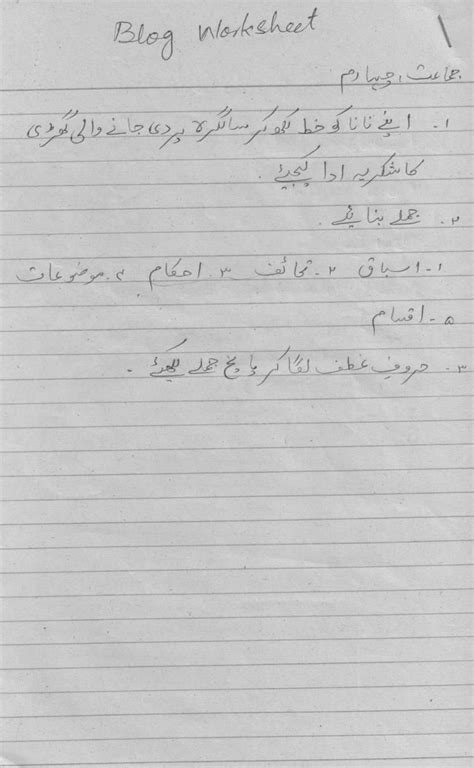 Blog Worksheet
جماعت، چہارم
۱. اپنے نانا کو خط لکھ کر سالگرہ پر دی جانے والی گھڑی
کا شکریہ ادا کیجیئے.
۲. جملے بنایئے.
۱- اسباق ۲- تحائف ۳. احکام ۴. موضوعات
۵- اقسام
۳. حروفِ عطف لگا کر پانچ جملے لکھیئے.